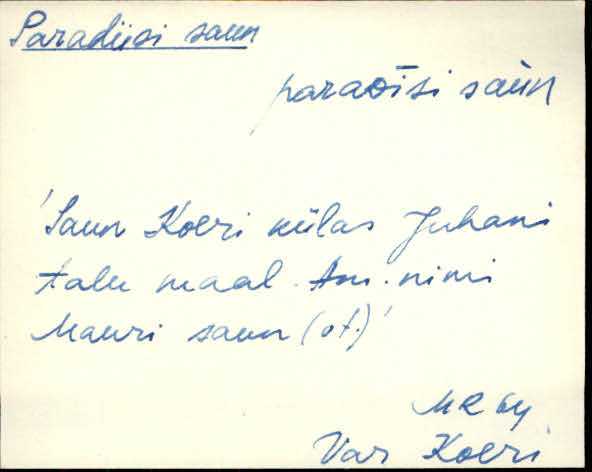 Paradiisi saun
paraðīsi saun
'Saun Koeri külas Juhani
talu maal. Am. nimi
Mauri saun (vt.)'
MR 64
Var Koeri